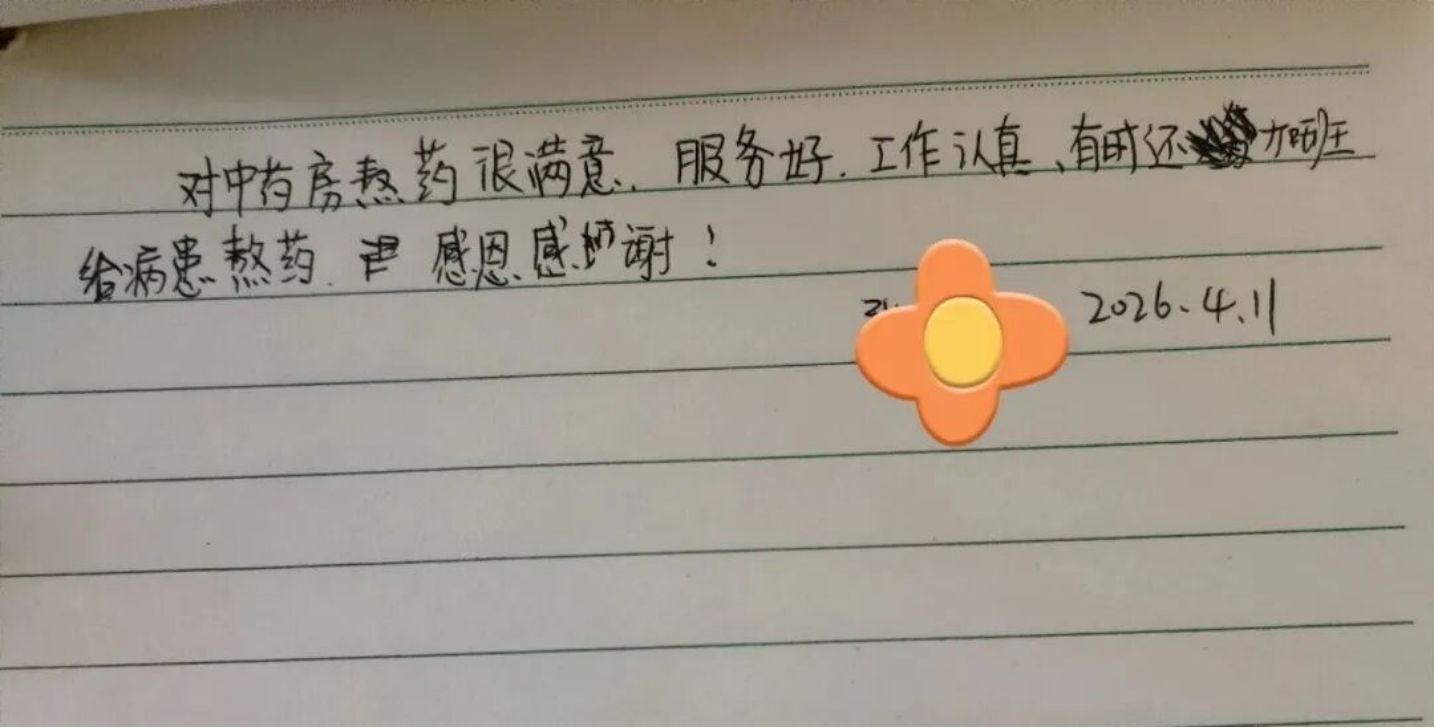 对中药房熬药很满意. 服务好. 工作认真、有时还加班
给病患熬药. 感恩感谢!
2026.4.11